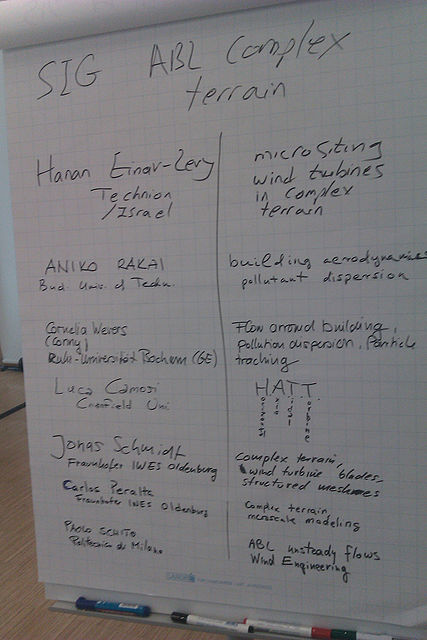 SIG ABL Complex
terrain
Hanan Einav-Levy
Technion
/Israel
microsIting
wind turbines
in complex
terrain
ANIKO RAKAI
Bud. Univ. of Techn.
building aerodynamics
pollutant dispersion
Cornelia Wevers
(Conny)
Ruhr-Universität Bochum (GE)
Flow around building,
pollution dispersion, Particle
tracking
Luca
Cranfield Uni
HATT
Horizontal
Axis
Tidal
Turbine
Jonas Schmidt
Fraunhofer IWES Oldenburg
complex terrain,
wind turbine blades,
structured meshes
Carlos Peralta
Fraunhofer IWES Oldenburg
Complex terrain
microscale modeling
PAOLO SCHITO
Politecnico di Milano
ABL unsteady flows
Wind Engineering